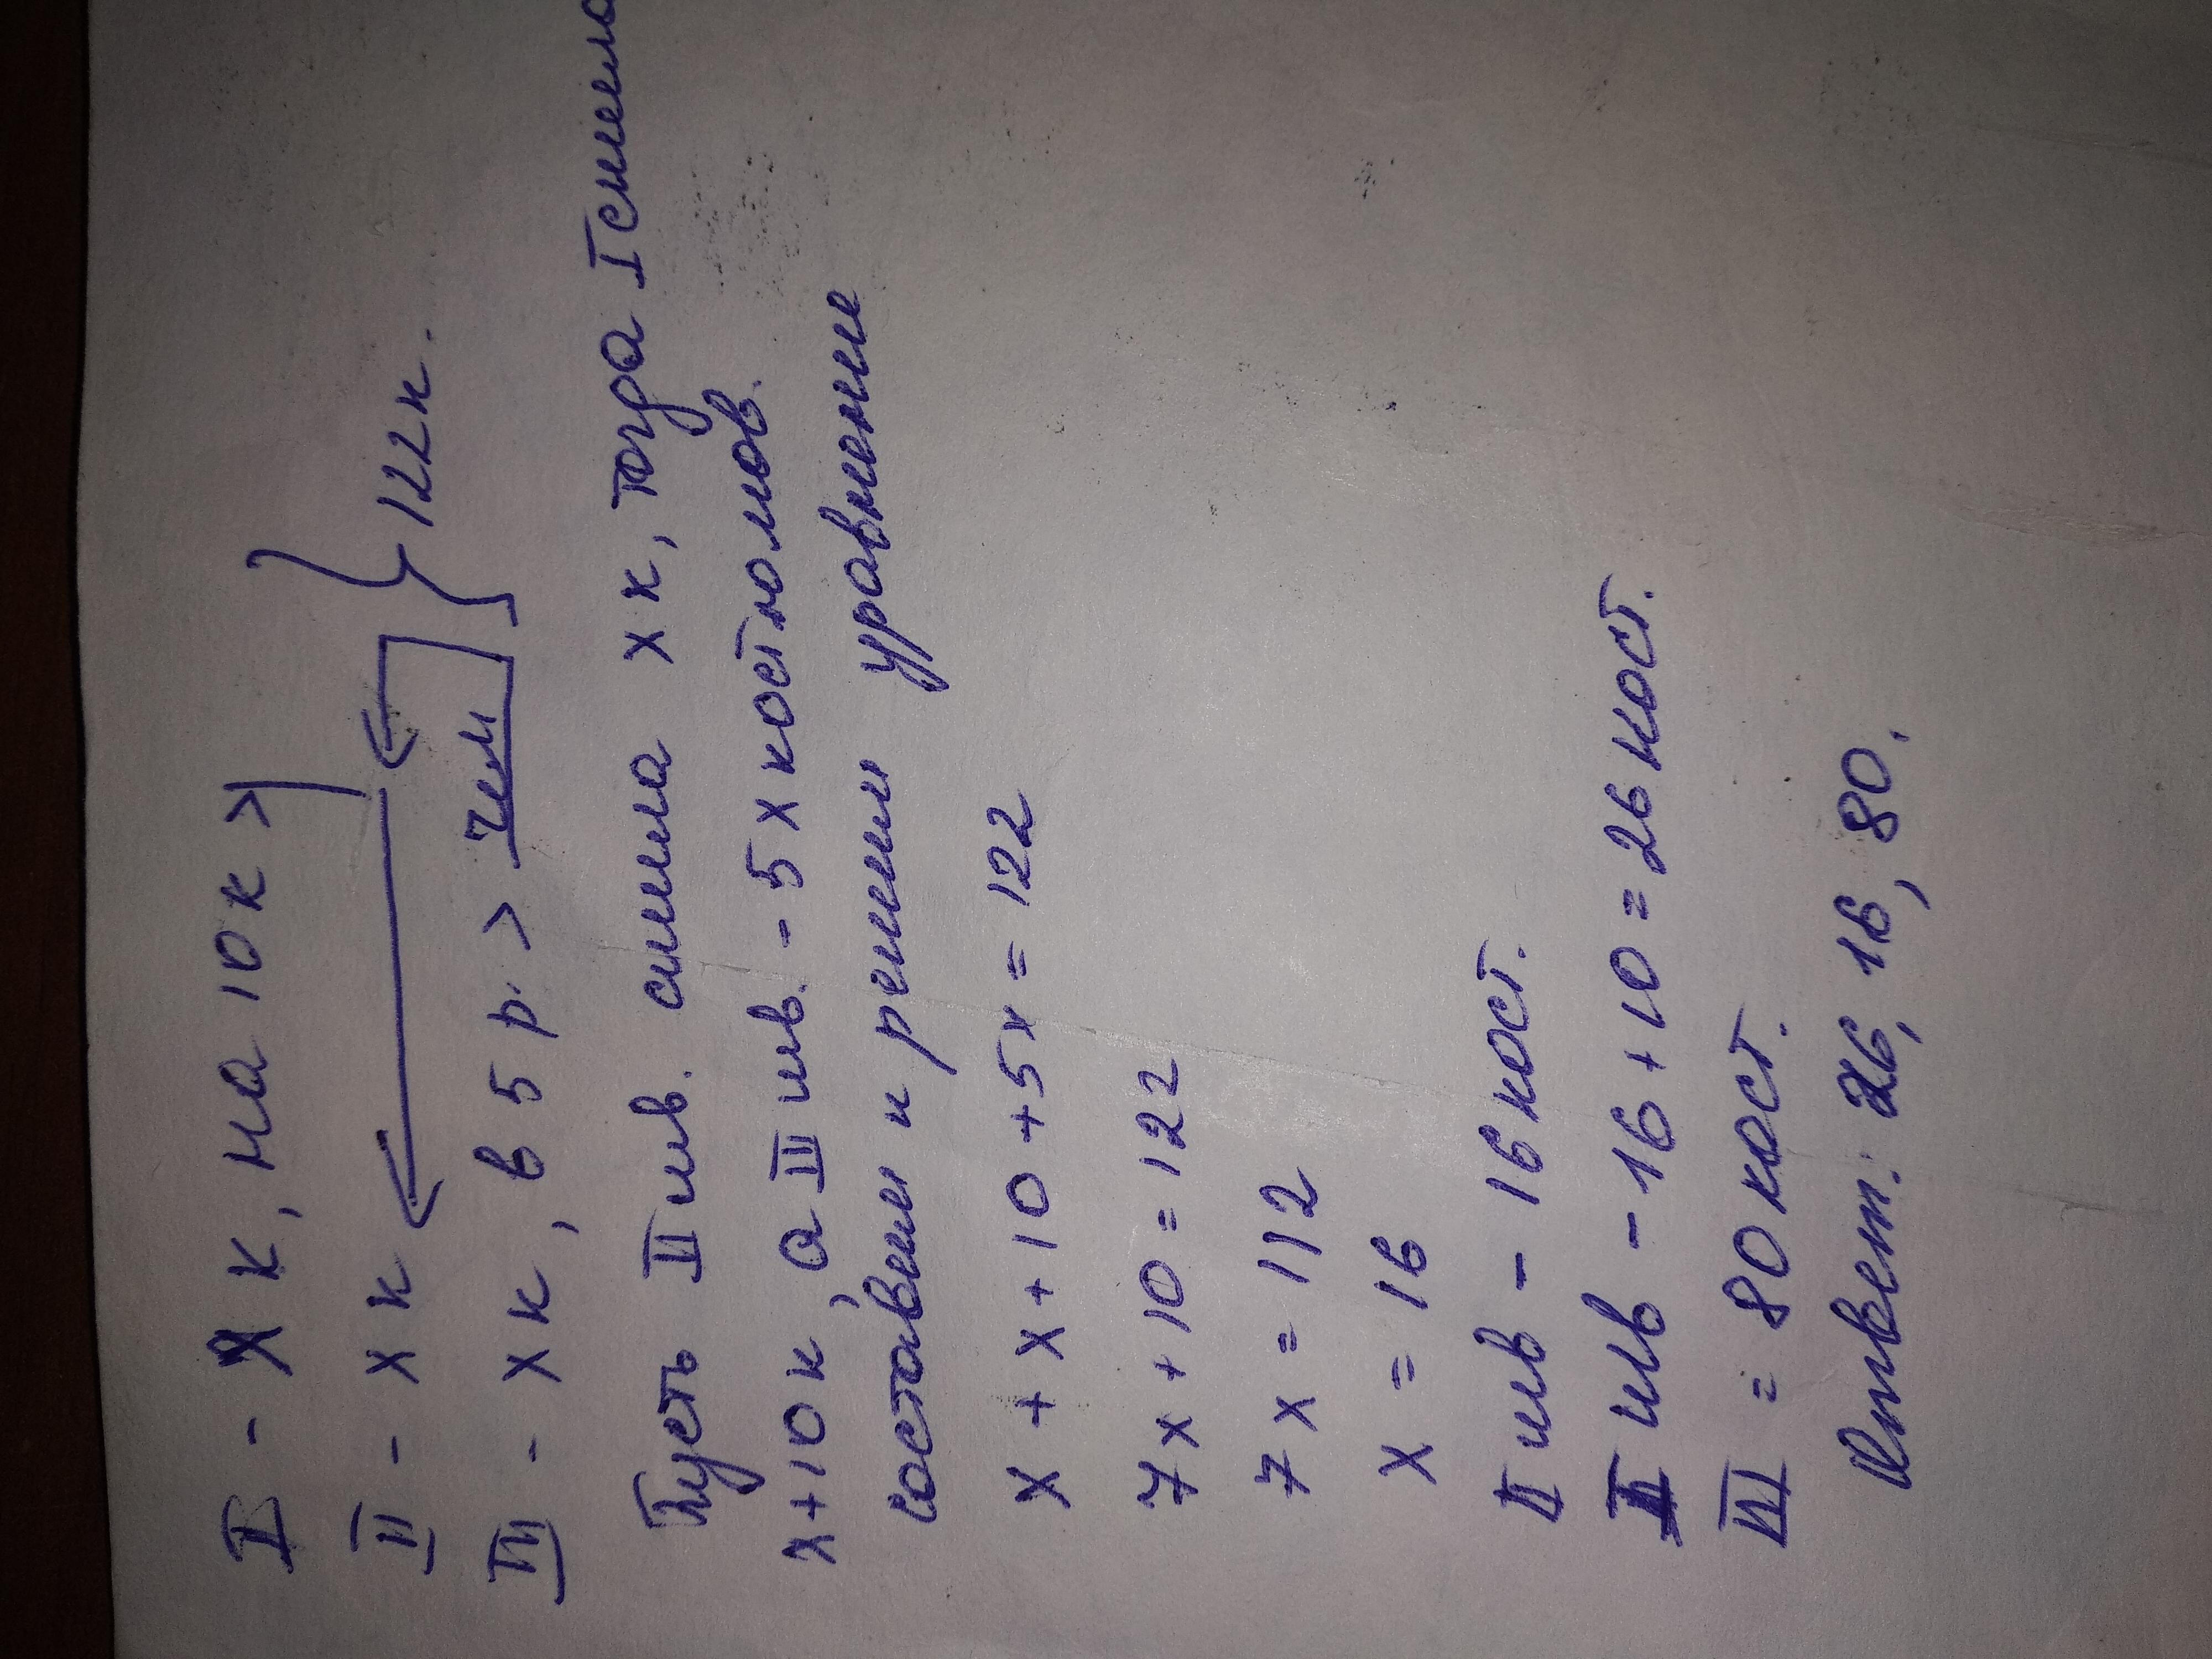 I - х к, на 10 к >
II - х к
} 122 к.
III - х к, в 5 р. > чем
Пусть II шв. сшила х к, тогда I сшила
х+10 к, а III шв. - 5 х костюмов.
составим и решим уравнение
х + х + 10 + 5х = 122
7х + 10 = 122
7х = 112
х = 16
II шв - 16 кост.
I шв - 16 + 10 = 26 кост.
III = 80 кост.
Ответ: 26, 16, 80.